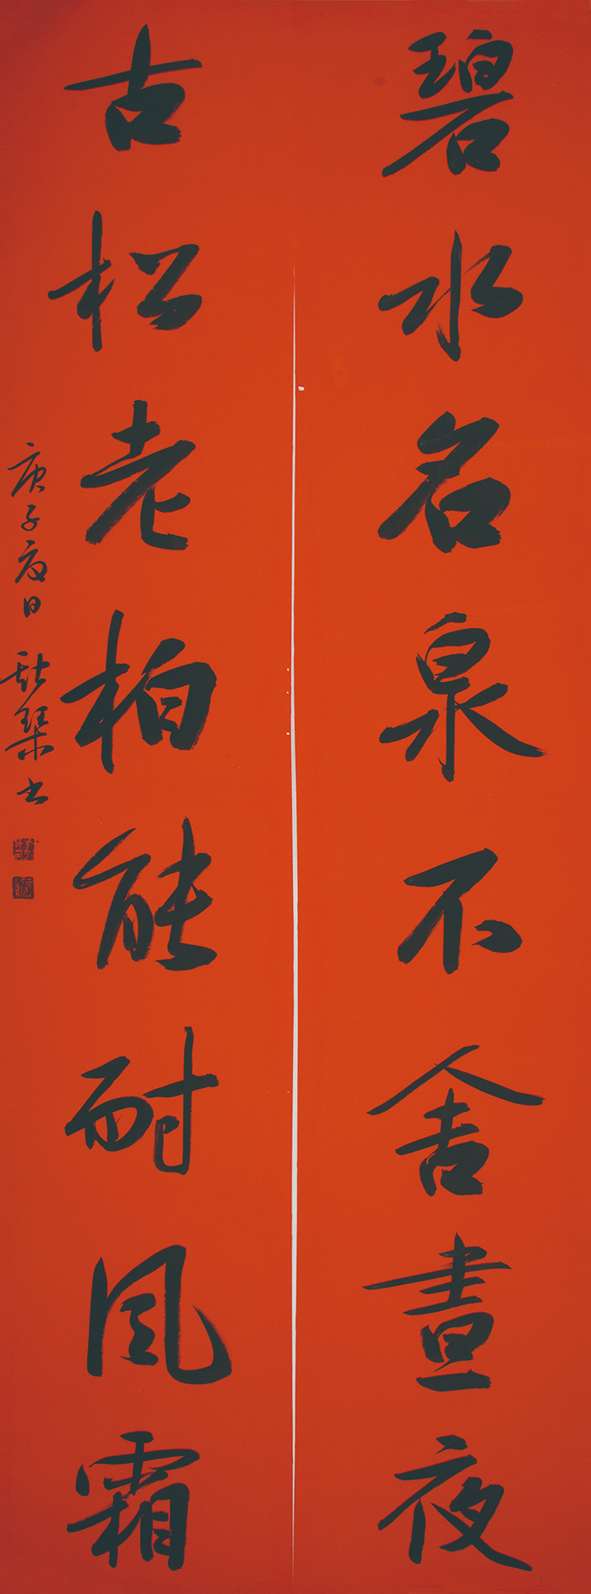 碧水名泉不舍晝夜
古松老柏能耐風霜
庚子夏日 琴書